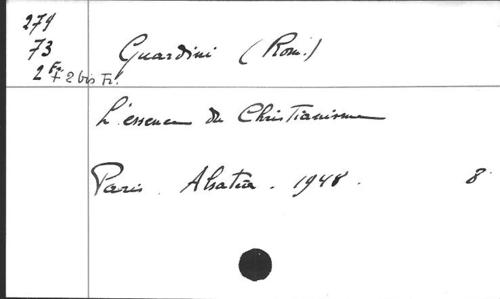 279
73 Guardini (Rom.)
2 Fr. + 2 bis Fr.
L'essence du Christianisme
Paris. Alsatia. 1948. 8°